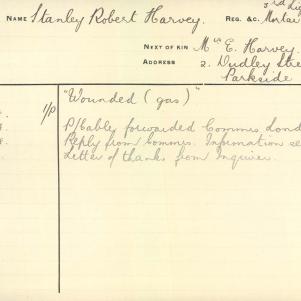 NAME Stanley Robert Harvey.
REG. &C. Mortar
NEXT OF KIN Mrs E. Harvey.
ADDRESS 2. Dudley Stre
Parkside
1/P
"Wounded (gas)"
P/Cabley forwarded Commrs Lond
Reply from Commrs. Information se
Letter of thanks from Inquirer.